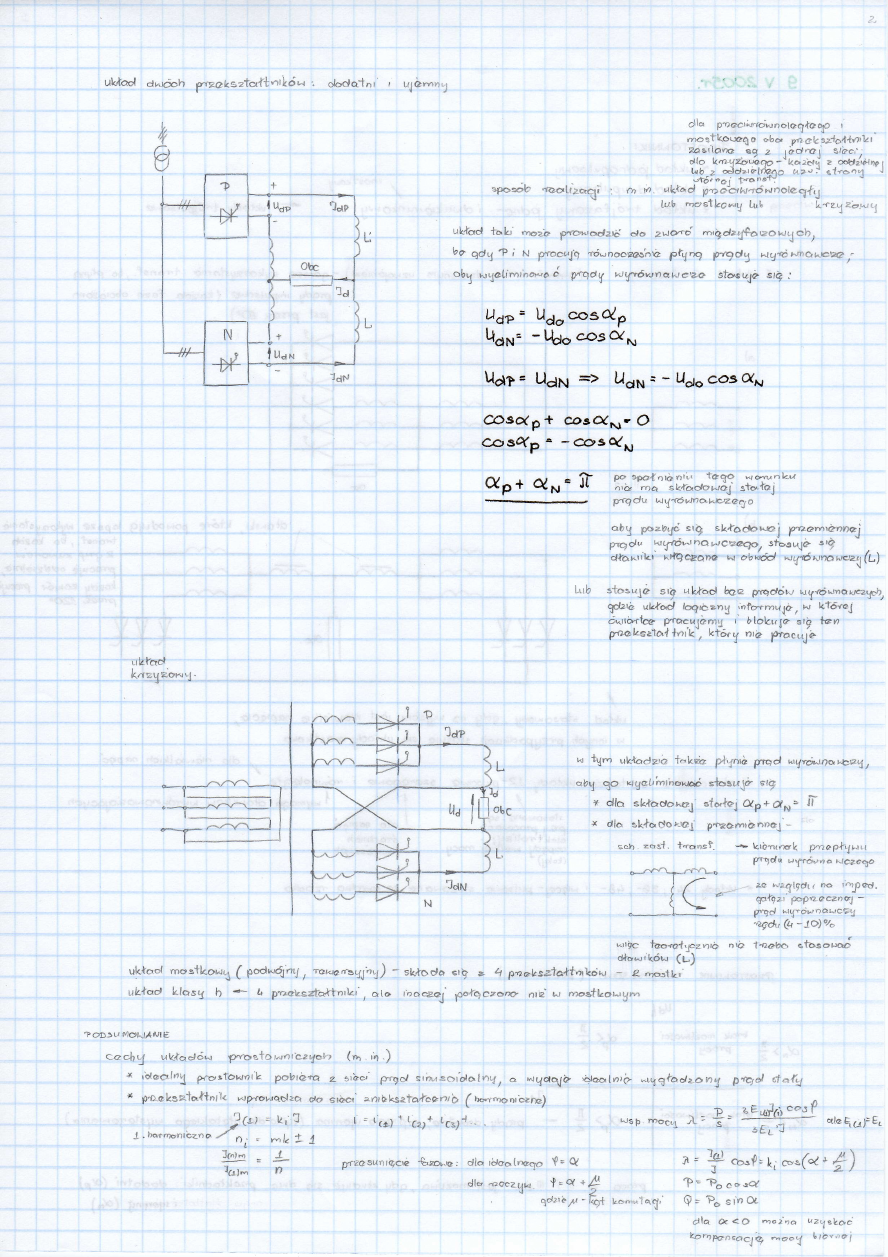 2.
układ dwóch przekształtników: dodatni i ujemny
9 V 2005r.
dla przeciwrównoległego i
mostkowego oba przekształtniki
zasilane są z jednej sieci;
dla krzyżowego - każdy z oddzielnej
lub z oddzielnego uzw. strony
wtórnej transf.
sposób realizacji: m.in. układ przeciwrównoległy
lub mostkowy lub krzyżowy
układ taki może prowadzić do zwarć międzyfazowych,
bo gdy P i N pracują równocześnie płyną prądy wyrównawcze;
aby wyeliminować prądy wyrównawcze stosuje się:
P
+
UdP
-
IdP
L
Obc
Id
L
N
+
UdN
-
IdN
UdP = Udo cosαP
UdN = -Udo cosαN
UdP = UdN => UdN = -Udo cosαN
cosαP + cosαN = 0
cosαP = -cosαN
αP + αN = π
po spełnieniu tego warunku
nie ma składowej stałej
prądu wyrównawczego
aby pozbyć się składowej przemiennej
prądu wyrównawczego, stosuje się
dławiki włączone w obwód wyrównawczy (L)
lub stosuje się układ bez prądów wyrównawczych,
gdzie układ logiczny informuje, w której
ćwiartce pracujemy i blokuje się ten
przekształtnik, który nie pracuje
układ
krzyżowy.
P
IdP
L
Id
Ud
Obc
L
IdN
N
w tym układzie także płynie prąd wyrównawczy,
aby go wyeliminować stosuje się
* dla składowej stałej αP + αN = π
* dla składowej przemiennej -
sch. zast. transf. → kierunek przepływu
prądu wyrównawczego
ze względu na imped.
gałęzi poprzecznej -
prąd wyrównawczy
rzędu (4-10)%
więc teoretycznie nie trzeba stosować
dławików (L)
układ mostkowy (podwójny, rewersyjny) - składa się z 4 przekształtników - 2 mostki
układ klasy h - 4 przekształtniki, ale inaczej połączone niż w mostkowym
PODSUMOWANIE
cechy układów prostowniczych (m.in.)
* idealny prostownik pobiera z sieci prąd sinusoidalny, a wydaje idealnie wygładzony prąd stały
* przekształtnik wprowadza do sieci zniekształcenia (harmoniczne)
1. harmoniczna
I(1) = ki I
i = i(1) + i(2) + i(3) + ...
ni = mk ± 1
I(n)m / I(1)m = 1/n
przesunięcie fazowe: dla idealnego φ = α
dla rzeczyw. φ = α + μ/2
gdzie μ - kąt komutacji
wsp mocy λ = P/S =
ale E(1) = EL
λ = I(1)/I cosφ = ki cos(α + μ/2)
P = Po cosα
Q = Po sinα
dla α<0 można uzyskać
kompensację mocy biernej